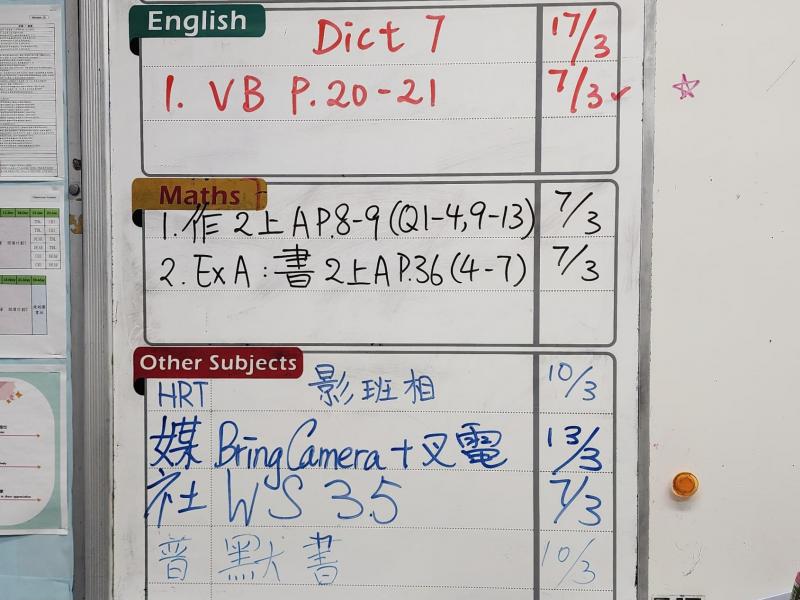 English
Dict 7 17/3
1. VB P.20-21 7/3 ✓
Maths
1. 作 2上A P.8-9 (Q1-4,9-13) 7/3
2. Ex A : 書 2上A P.36 (4-7) 7/3
Other Subjects
HRT 影班相 10/3
媒 Bring Camera + 叉電 13/3
社 WS 3.5 7/3
普 默書 10/3